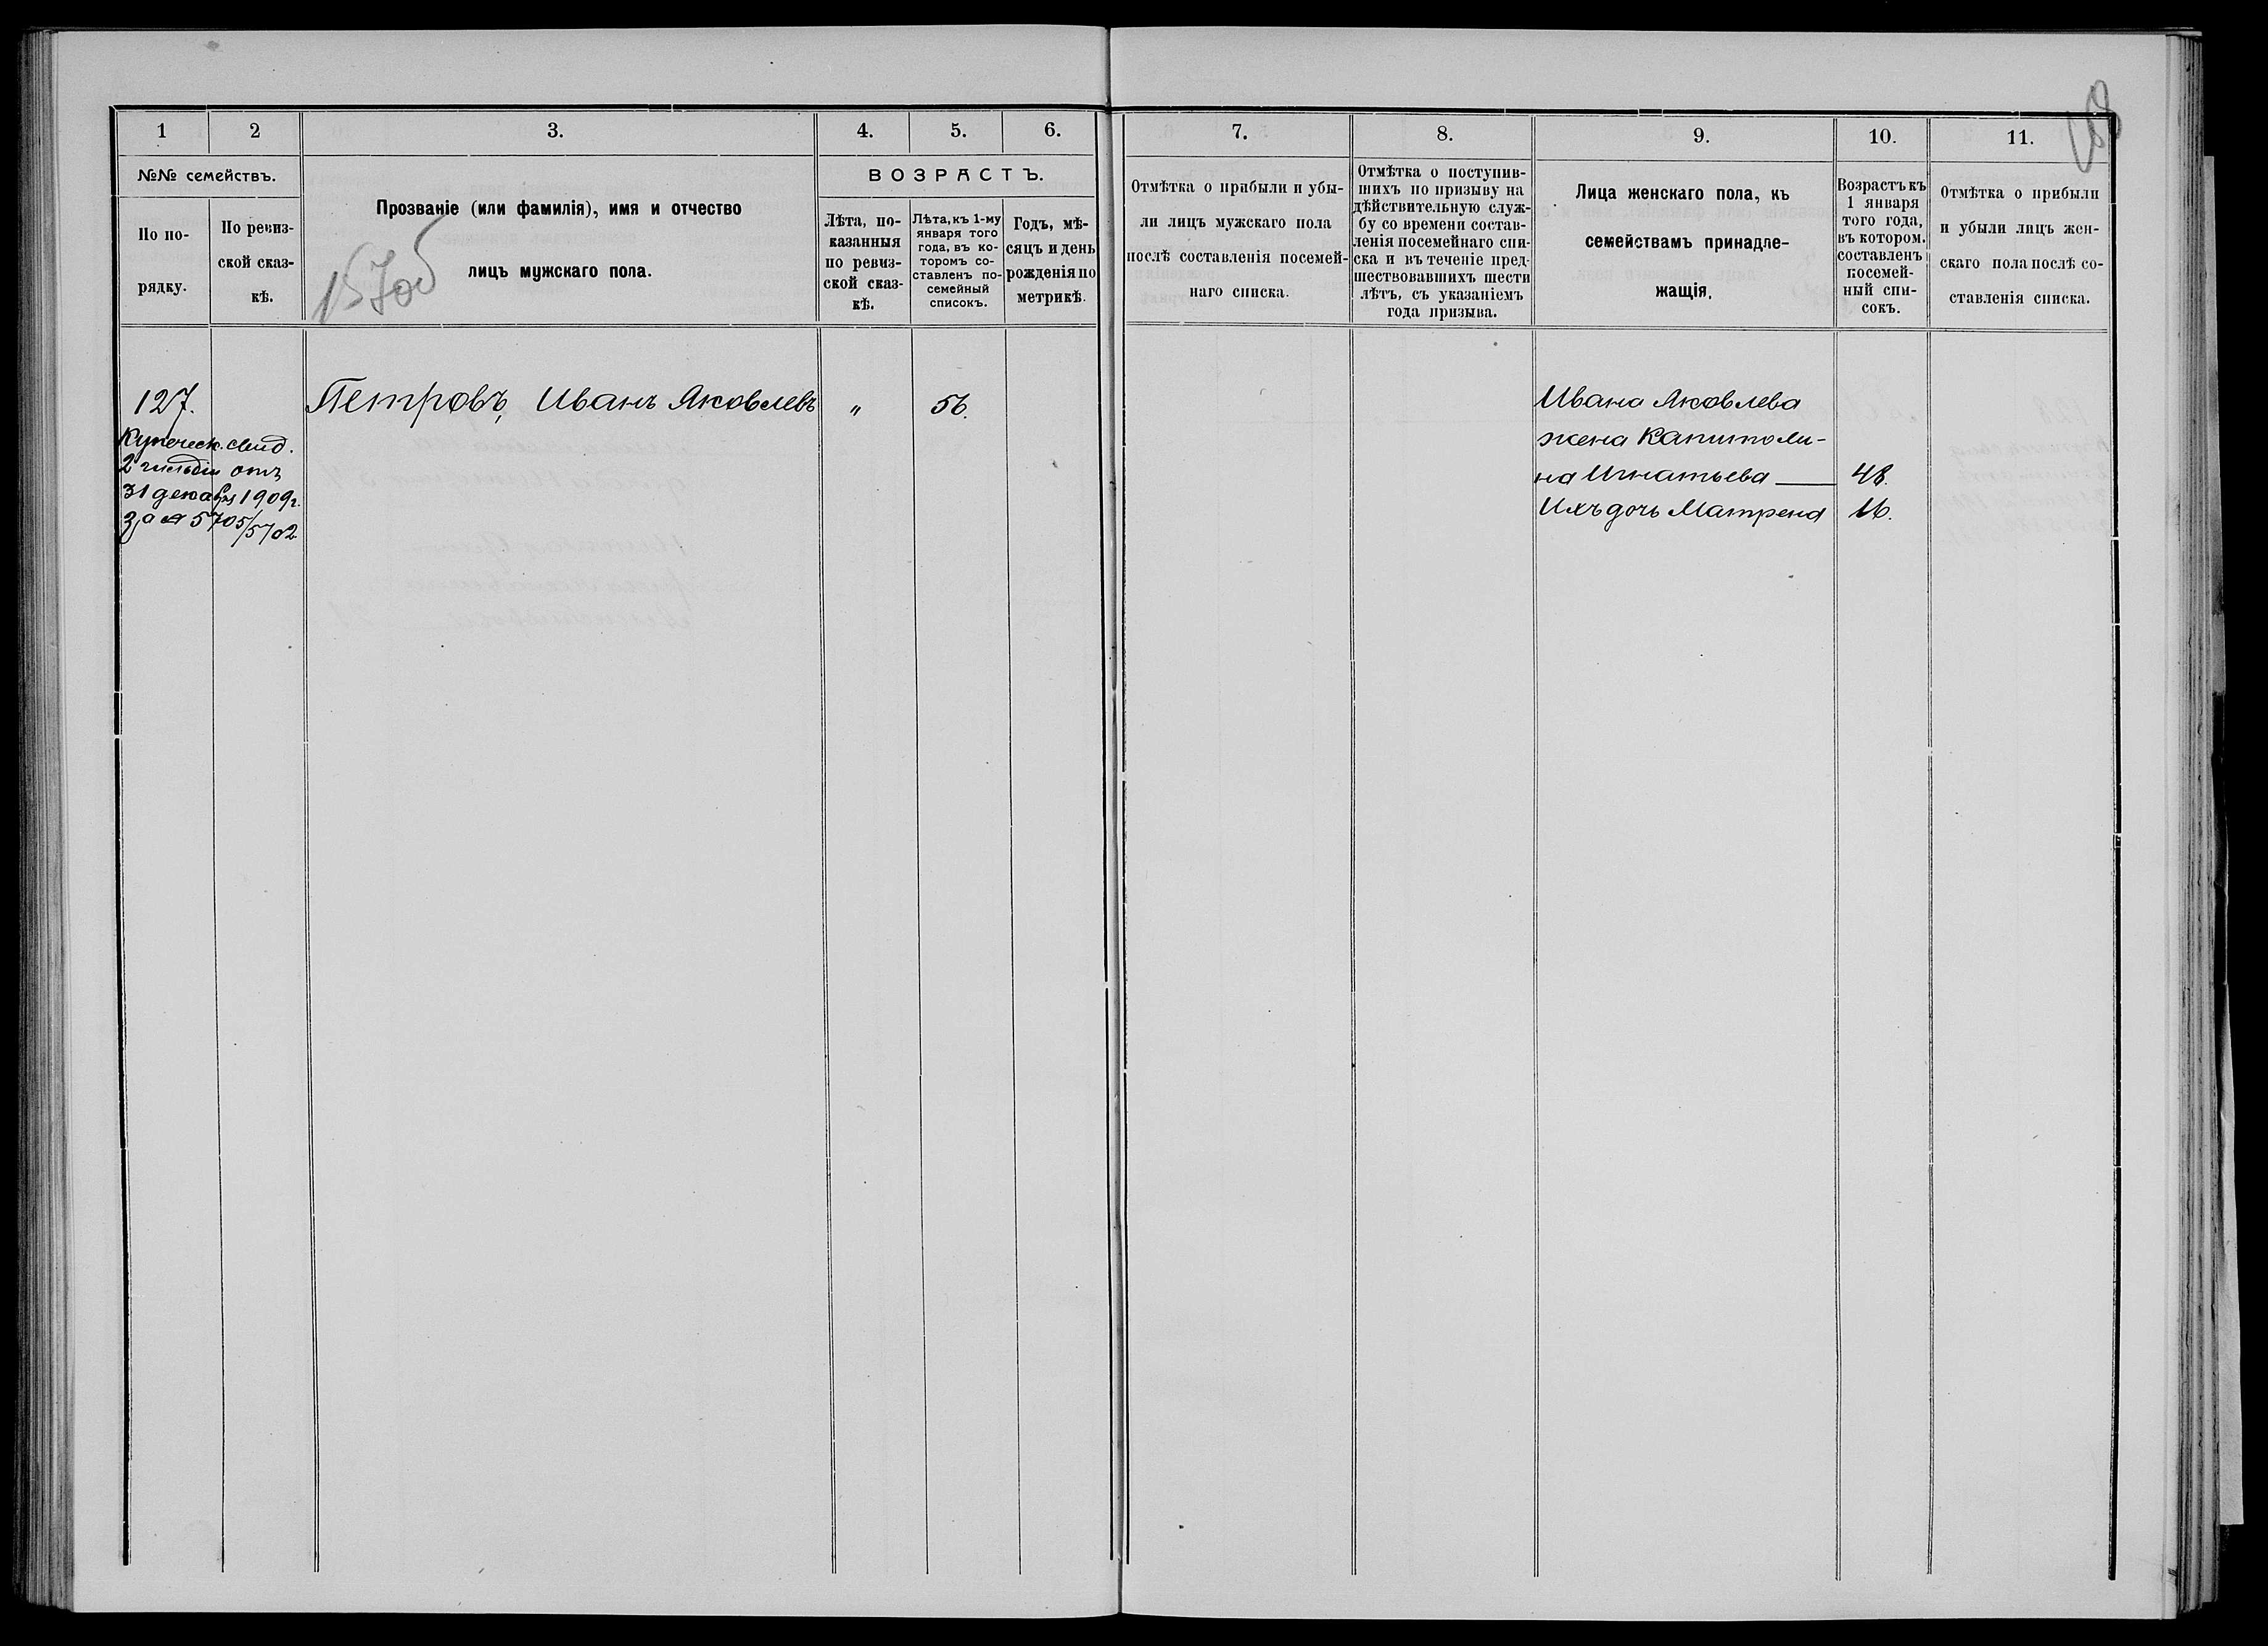 1
2
3.
4.
5.
6.
7.
8.
9.
10.
11.
№№ семействъ.
По по-
рядку.
По ревиз-
ской сказ-
кѣ.
Прозваніе (или фамилія), имя и отчество
лицъ мужскаго пола.
ВОЗРАСТЪ.
Лѣта, по-
казанныя
по ревиз-
ской сказ-
кѣ.
Лѣта, къ 1-му
января того
года, въ ко-
торомъ со-
ставленъ по-
семейный
списокъ.
Годъ, мѣ-
сяцъ и день
рожденія по
метрикѣ.
Отмѣтка о прибыли и убы-
ли лицъ мужскаго пола
послѣ составленія посемей-
наго списка.
Отмѣтка о поступив-
шихъ по призыву на
дѣйствительную служ-
бу со времени состав-
ленія посемейнаго спи-
ска и въ теченіе пред-
шествовавшихъ шести
лѣтъ, съ указаніемъ
года призыва.
Лица женскаго пола, къ
семействамъ принадле-
жащія.
Возрастъ къ
1 января
того года,
въ котором.
составленъ
посемей-
ный спи-
сокъ.
Отмѣтка о прибыли
и убыли лицъ жен-
скаго пола послѣ со-
ставленія списка.
127.
Купеческ. свид.
2 гильдіи отъ
31 декабря 1909 г.
за № 5705/5702
Петровъ, Иванъ Яковлевъ
„
56.
Ивана Яковлева
жена Капитоли-
на Игнатьева
48.
Ихъ дочь Матрена
16.